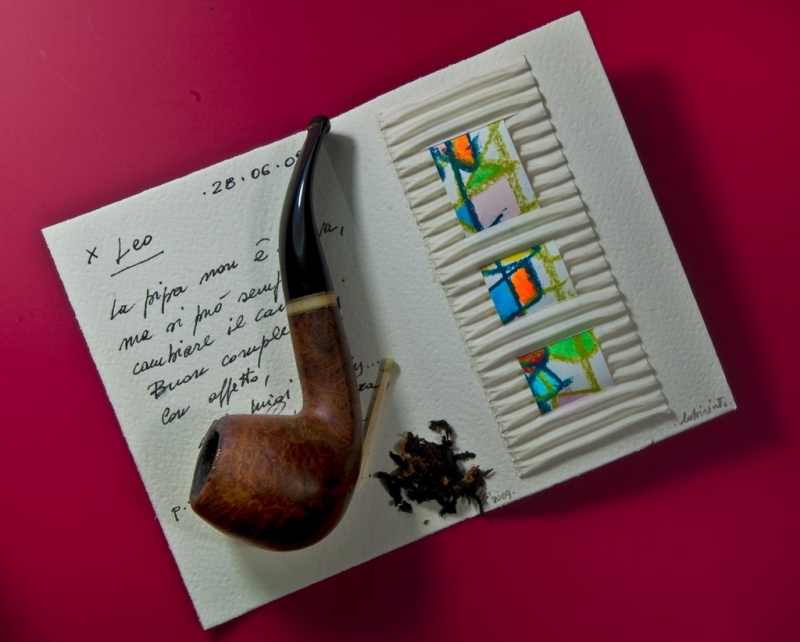 .28.06.0
x Leo
La pipa non è
ma si può semp
cambiare il
Buon comple
con affetto,
luigi
p.
2009.
labirinto.